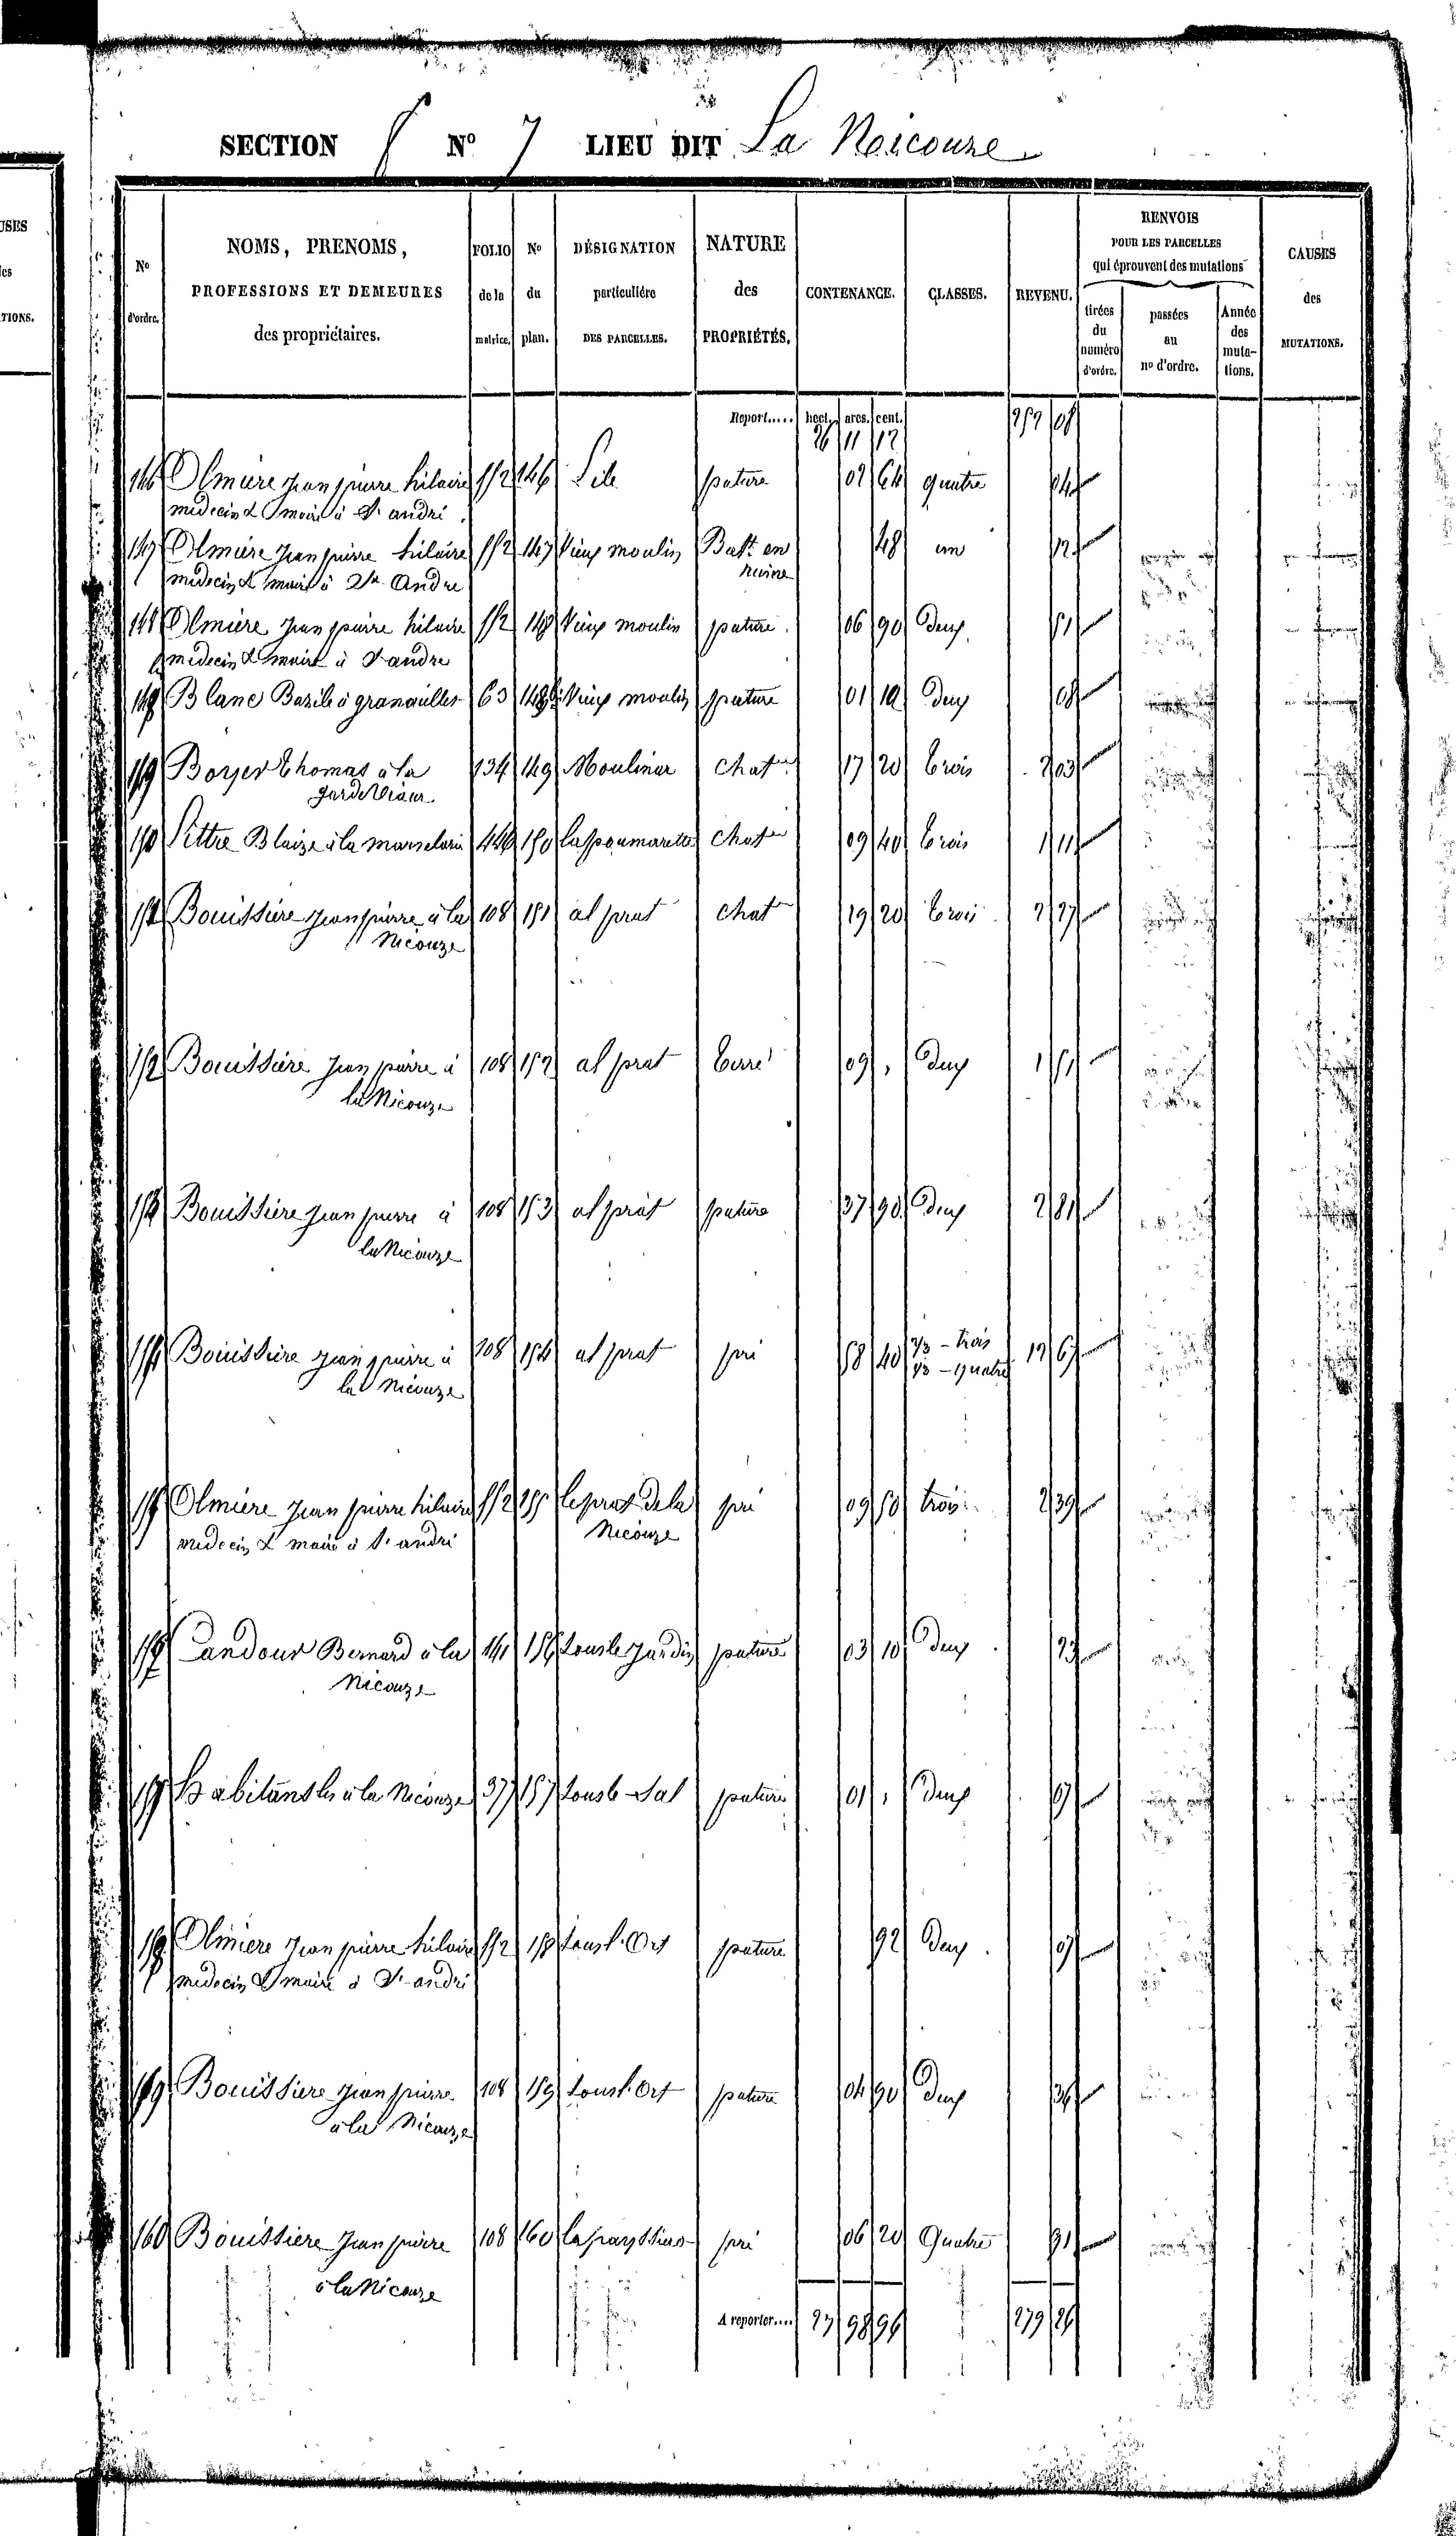 SECTION F N° 7 LIEU DIT La Neicouze
USES
es
TIONS.
N° d'ordre.
NOMS, PRENOMS,
PROFESSIONS ET DEMEURES
des propriétaires.
FOLIO de la matrice.
N° du plan.
DÉSIGNATION particulière DES PARCELLES.
NATURE des PROPRIÉTÉS.
CONTENANCE.
CLASSES.
REVENU.
RENVOIS
POUR LES PARCELLES
qui éprouvent des mutations
tirées du numéro d'ordre.
passées au n° d'ordre.
Année des mutations.
CAUSES des MUTATIONS.
Report..... hect. ares. cent.
26 11 12 252 08
146 Olmière jean pierre hilaire 552 146 L'ile pature 02 64 quatre 04
médecin & maire à St andré
147 Olmière jean pierre hilaire 552 147 Vieux moulin Batt. en 48 un 12
ruine
médecin & maire à St André
148 Olmière jean pierre hilaire 552 148 Vieux moulin pature 06 90 Deux 51
médecin & maire à St andre
Blanc Bazile à granouilles 63 Vieux moulin pature 01 10 Deux 08
149 Boyer Thomas à la 134 149 Moulinar chat. 17 20 trois 2 03
garde Viaur
150 Littre Blaize à la 446 150 chat. 09 40 trois 1 11
151 Bouissière jean pierre à la 108 151 al prat chat 19 20 trois 2 27
Nicouze
152 Bouissière jean pierre à 108 152 al prat terre 09 , Deux 1 51
la Nicouze
153 Bouissière jean pierre à 108 153 al prat pature 37 90 Deux 2 81
la Nicouze
154 Bouissière jean pierre à 108 154 al prat pré 58 40 2/3 - trois 12 67
1/3 - quatre
la Nicouze
155 Olmière jean pierre hilaire 552 155 le prat de la pré 09 50 trois 2 39
Nicouze
médecin & maire à St andré
156 Candour Bernard à la 141 156 sous le jardin pature 03 10 Deux 23
Nicouze
157 habitans les à la Nicouze 377 157 sous le Sal pature 01 , Deux 07
158 Olmière jean pierre hilaire 552 158 sous l'Ort pature 92 Deux 07
médecin & maire à St andré
159 Bouissière jean pierre 108 159 sous l'Ort pature 04 90 Deux 36
à la Nicouze
160 Bouissière jean pierre 108 160 pré 06 20 Quatre 91
à la Nicouze
A reporter.... 27 98 96 279 26